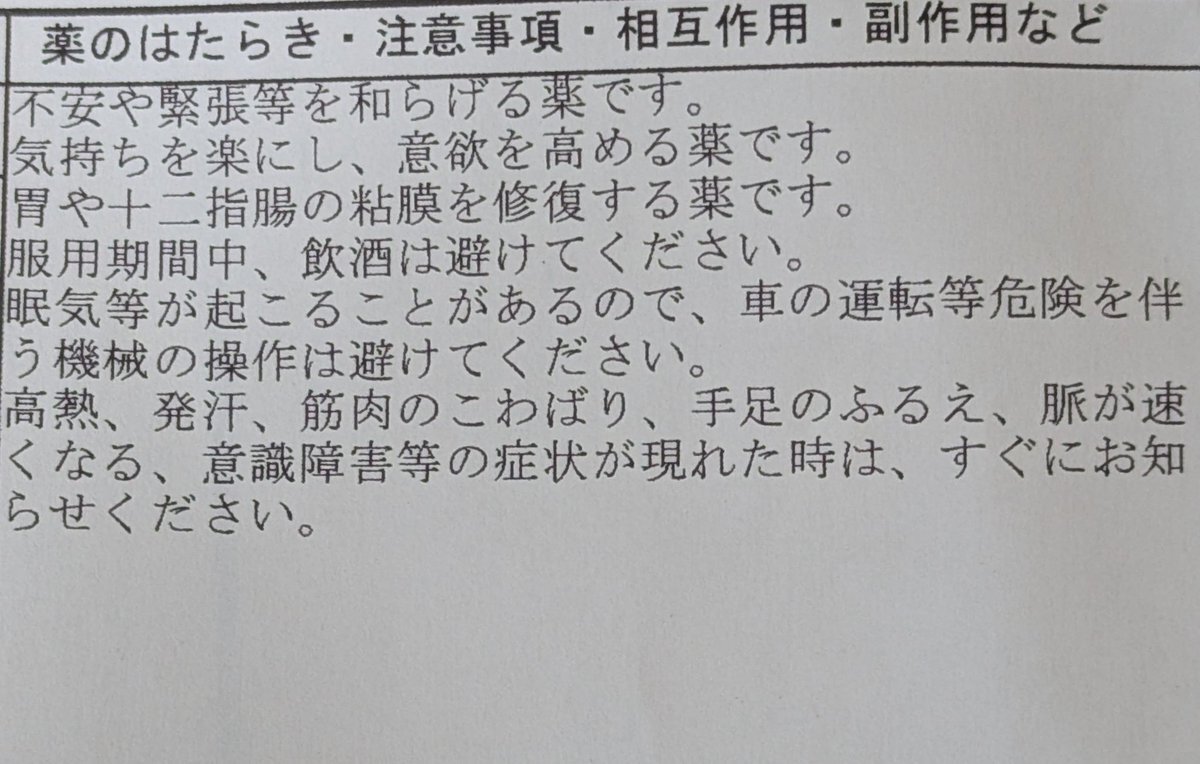 薬のはたらき・注意事項・相互作用・副作用など
不安や緊張等を和らげる薬です。
気持ちを楽にし、意欲を高める薬です。
胃や十二指腸の粘膜を修復する薬です。
服用期間中、飲酒は避けてください。
眠気等が起こることがあるので、車の運転等危険を伴
う機械の操作は避けてください。
高熱、発汗、筋肉のこわばり、手足のふるえ、脈が速
くなる、意識障害等の症状が現れた時は、すぐにお知
らせください。